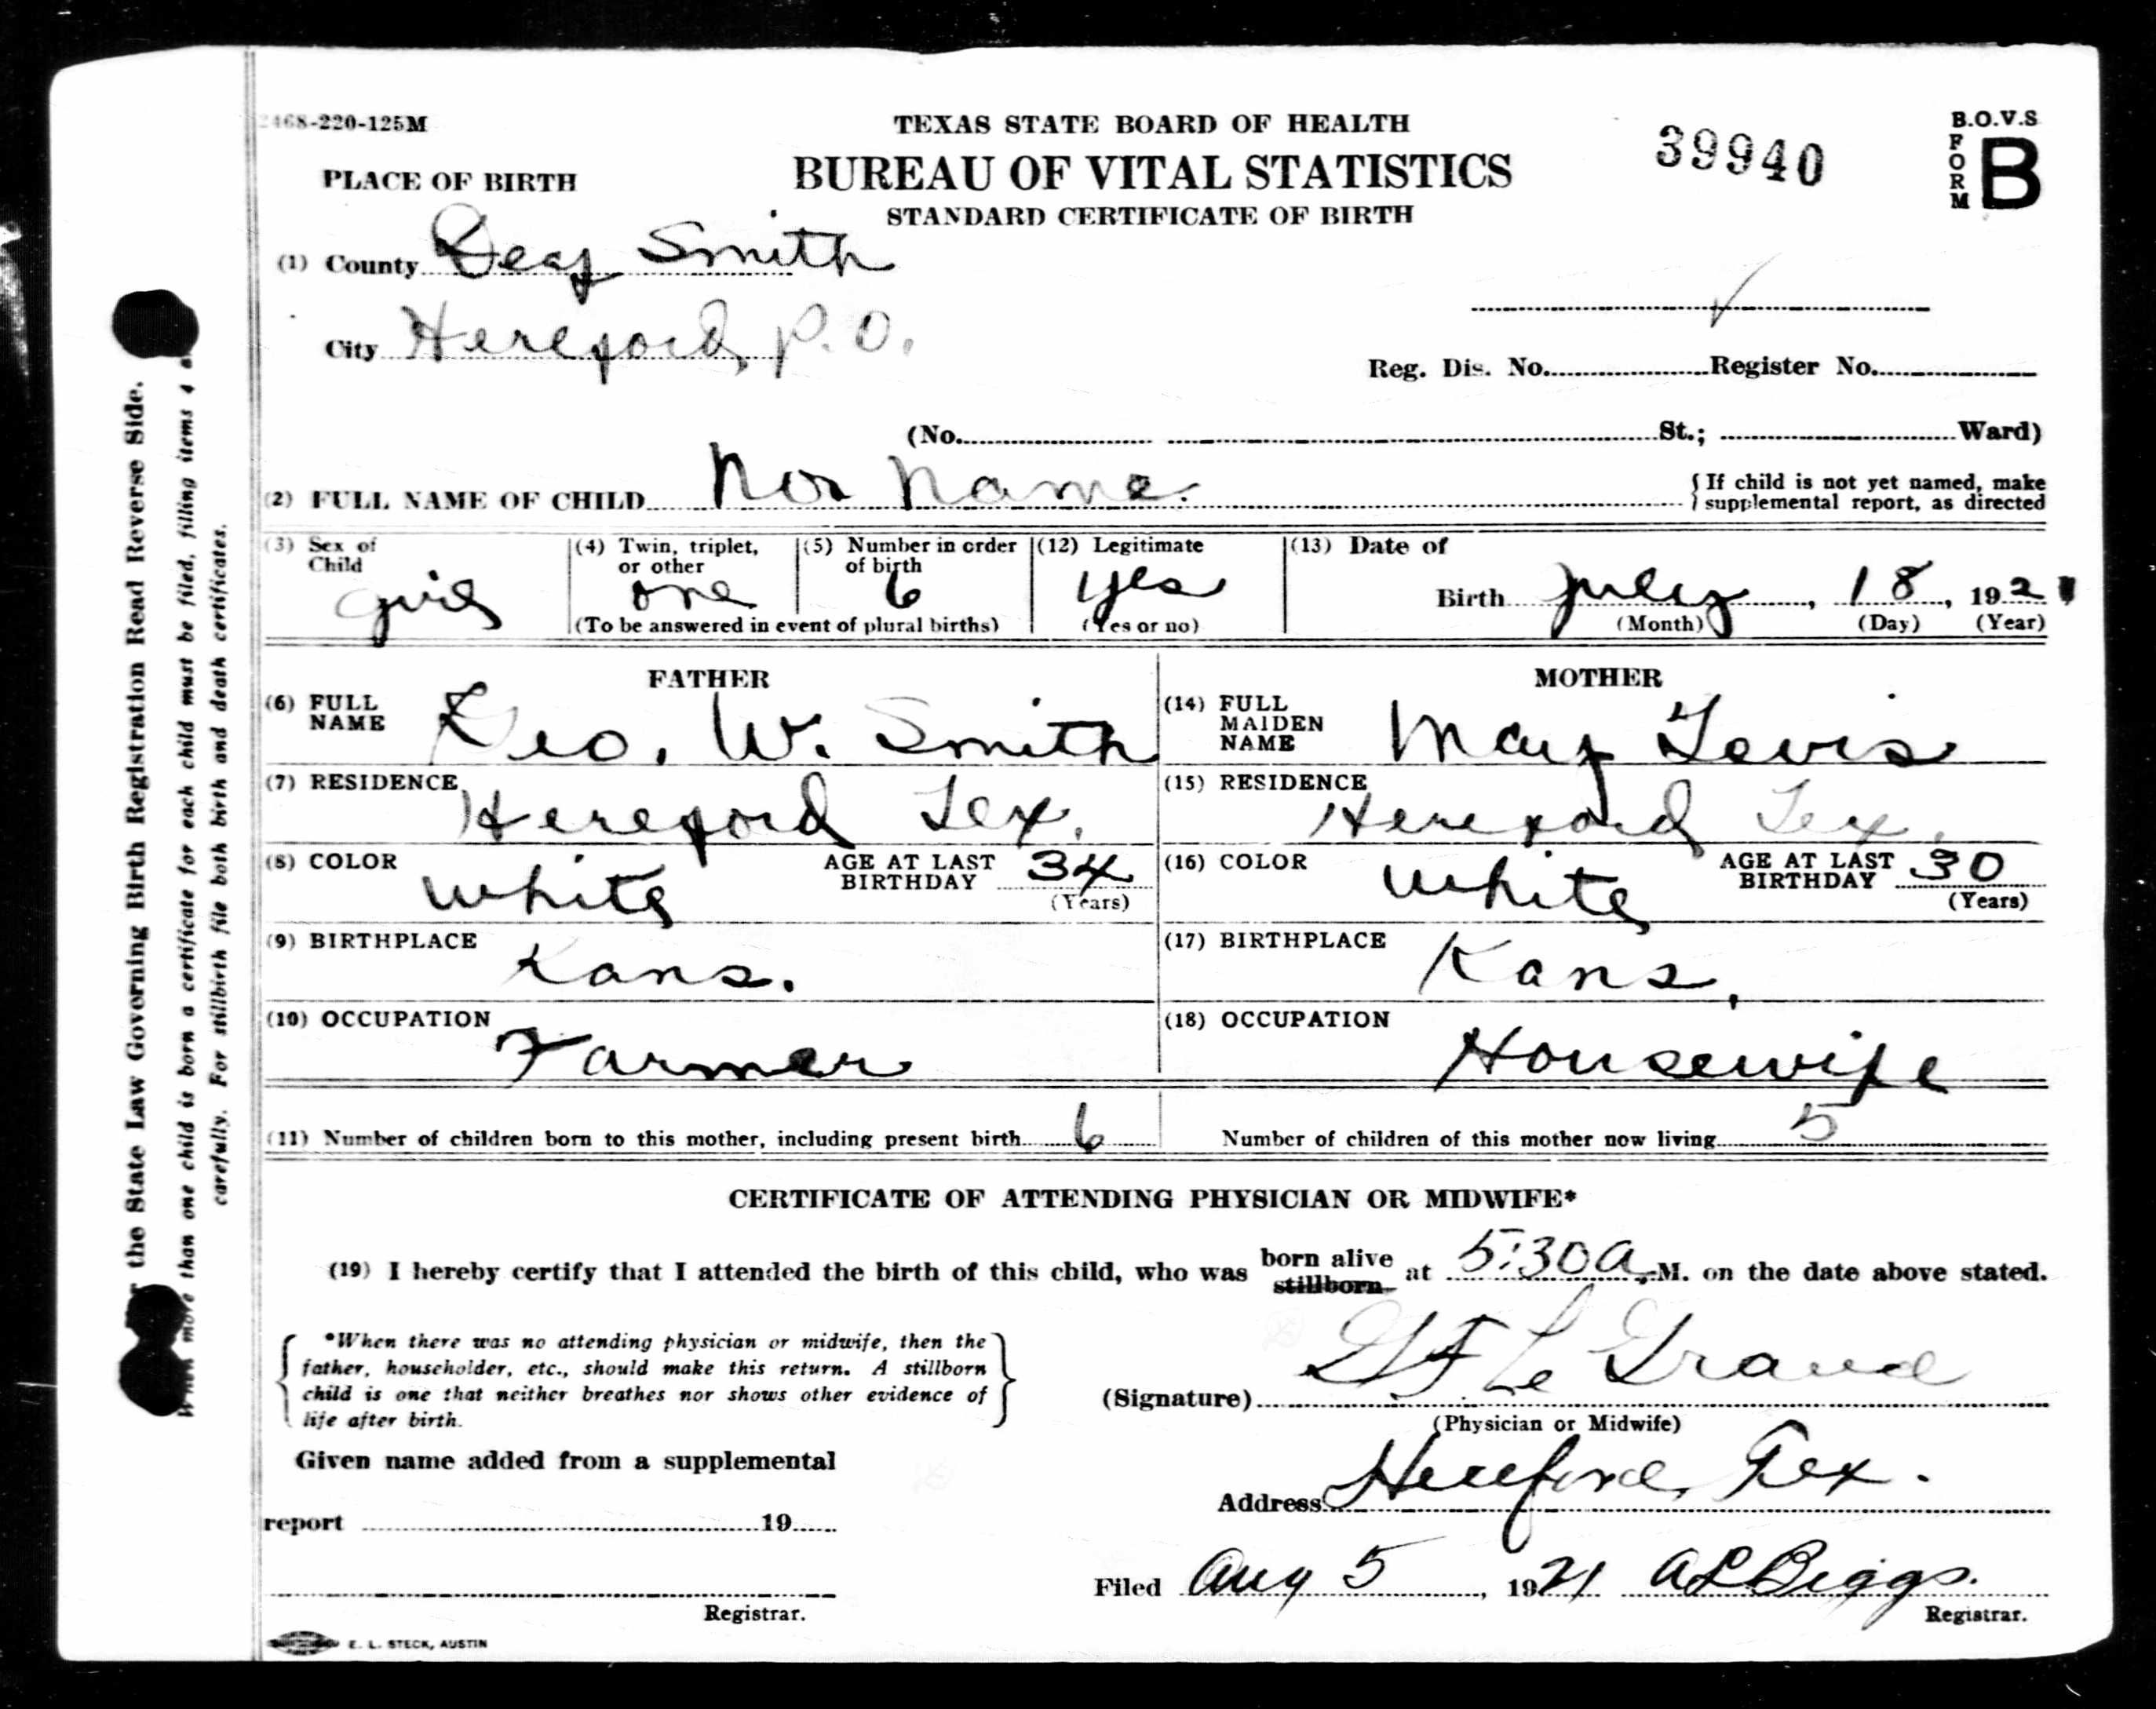 2468-220-125M
TEXAS STATE BOARD OF HEALTH
BUREAU OF VITAL STATISTICS
STANDARD CERTIFICATE OF BIRTH
39940
B.O.V.S
FORM B
PLACE OF BIRTH
(1) County Deaf Smith
City Hereford, P.O.
Reg. Dis. No. Register No.
(No. St.; Ward)
(2) FULL NAME OF CHILD Name. { If child is not yet named, make
supplemental report, as directed
(3) Sex of Child girl
(4) Twin, triplet, or other one
(5) Number in order of birth 6
(To be answered in event of plural births)
(12) Legitimate yes
(Yes or no)
(13) Date of
Birth July, 18, 1921
(Month) (Day) (Year)
FATHER
(6) FULL NAME Geo. W. Smith
(7) RESIDENCE Hereford Tex.
(8) COLOR White AGE AT LAST BIRTHDAY 34 (Years)
(9) BIRTHPLACE Kans.
(10) OCCUPATION Farmer
MOTHER
(14) FULL MAIDEN NAME May
(15) RESIDENCE Hereford Tex.
(16) COLOR White AGE AT LAST BIRTHDAY 30 (Years)
(17) BIRTHPLACE Kans.
(18) OCCUPATION Housewife
(11) Number of children born to this mother, including present birth 6 Number of children of this mother now living 5
CERTIFICATE OF ATTENDING PHYSICIAN OR MIDWIFE*
(19) I hereby certify that I attended the birth of this child, who was born alive stillborn at 5:30 A.M. on the date above stated.
{ *When there was no attending physician or midwife, then the
father, householder, etc., should make this return. A stillborn
child is one that neither breathes nor shows other evidence of
life after birth. }
(Signature) Le Grand
(Physician or Midwife)
Address Hereford, Tex.
Given name added from a supplemental
report 19
Registrar.
Filed Aug 5, 1921 A L Biggs.
Registrar.
E. L. STECK, AUSTIN
the State Law Governing Birth Registration Read Reverse Side.
When more than one child is born a certificate for each child must be filed, filling items 4
carefully. For stillbirth file both birth and death certificates.